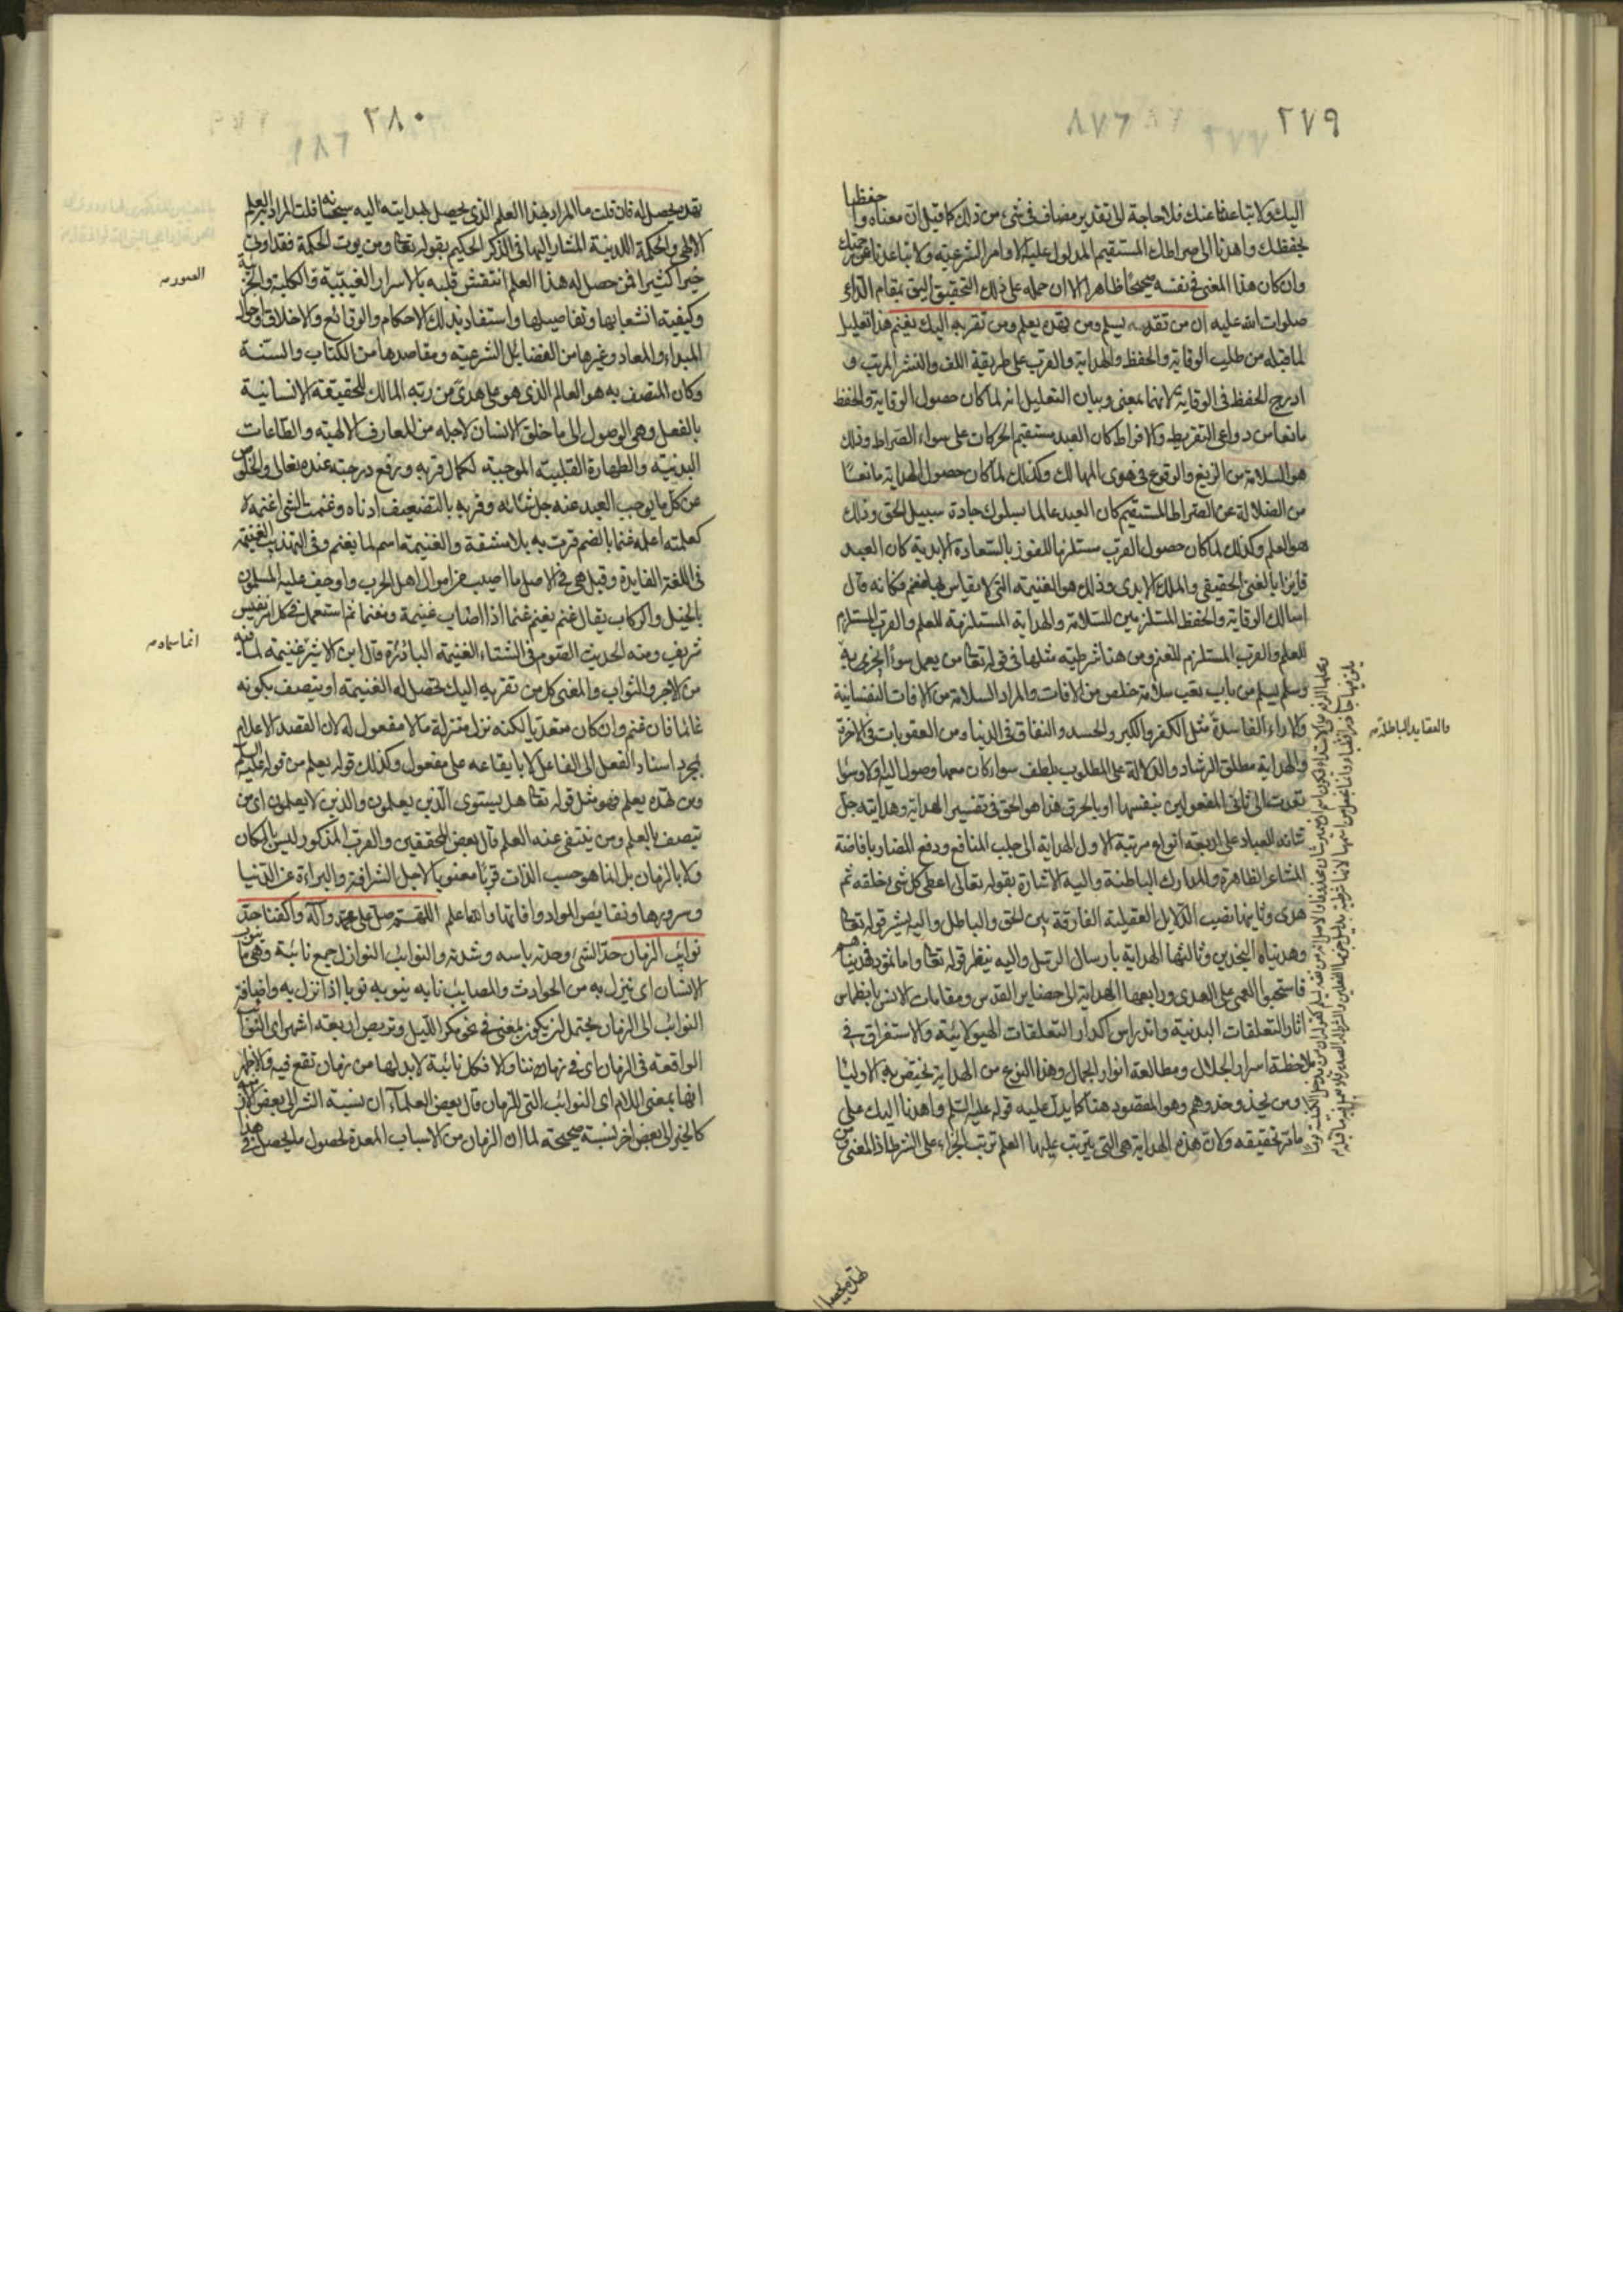 ٢٧٩
اليك ولا تباعدنا عنك فلا حاجة الى تقدير مضاف في شيء من ذلك كما قيل ان معناه واحفظنا
بحفظك واهدنا الى صراطك المستقيم المدلول عليه بالاوامر الشرعية ولا تباعدنا عن
وان كان هذا المعنى في نفسه صحيحا ظاهرا الا ان حمله على ذلك التحقيق اليق بمقام الداعي
صلوات الله عليه ان من تقه يسلم ومن تهده يعلم ومن تقربه اليك يغنم هذا تعليل
لما قبله من طلب الوقاية والحفظ والهداية والقرب على طريقة اللف والنشر المرتب و
ادرج الحفظ في الوقاية لانهما بمعنى وبيان التعليل انه لما كان حصول الوقاية والحفظ
مانعا من دواعي التفريط والافراط كان العبد مستقيم الحركات على سواء الصراط وذلك
هو السلامة من الزيغ والوقوع في هوى المهالك وكذلك لما كان حصول الهداية مانعا
من الضلالة عن الصراط المستقيم كان العبد عالما بسلوك جادة سبيل الحق وذلك
هو العلم وكذلك لما كان حصول القرب مستلزما للفوز بالسعادة الابدية كان العبد
فايزا بالغنى الحقيقي والملك الابدي وذلك هو الغنيمة التي لا يقاس بها مغنم فكانه قال
اسالك الوقاية والحفظ المستلزمين للسلامة والهداية المستلزمة للعلم والقرب المستلزم
للعلم والقرب المستلزم للغنم ومن هنا شرطية مثلها في قوله تعا من يعمل سوءا يجز به
وسلم يسلم من باب تعب سلامة خلص من الافات والمراد السلامة من الافات النفسانية
والاراء الفاسدة مثل الكفر والكبر والحسد والنفاق في الدنيا ومن العقوبات في الاخرة
والعقايد الباطلة
والهداية مطلق الرشاد والدلالة على المطلوب بلطف سواء كان معها وصول اليه ولا وسوا
تعدت الى ثاني المفعولين بنفسها او بالحرف هذا هو الحق في تفسير الهداية وهدايته جل
شانه للعباد على اربعة انواع مرتبة الاول الهداية الى جلب المنافع ودفع المضار بافاضة
المشاعر الظاهرة والمدارك الباطنة واليه الاشارة بقوله تعالى اعطى كل شيء خلقه ثم
هدى وثانيها نصب الدلايل العقلية الفارقة بين الحق والباطل واليه يشير قوله تعا
وهديناه النجدين وثالثها الهداية بارسال الرسل واليه ينظر قوله تعا واما ثمود فهديناهم
فاستحبوا العمى على الهدى ورابعها الهداية الى حضاير القدس ومقامات الانس بانطماس
اثار التعلقات البدنية واندراس اكدار التعلقات الهيولانية والاستغراق في
ملاحظة اسرار الجلال ومطالعة انوار الجمال وهذا النوع من الهداية يختص به الاوليا
ومن يحذو حذوهم وهو المقصود هنا كما يدل عليه قوله عليه السلم واهدنا اليك على
ما مر تحقيقه ولان هذه الهداية هي التي يترتب عليها العلم ترتب الجزاء على الشرط اذ المعنى من
تهده يحصل
٢٨٠
تهده يحصل له فان قلت ما المراد بهذا العلم الذي يحصل بهدايته اليه سبحانه قلت المراد به العلم
الالهي والحكمة اللدنية المشار اليها في الذكر الحكيم بقوله تعا ومن يوت الحكمة فقد اوتي
خيرا كثيرا فمن حصل له هذا العلم انتقش قلبه بالاسرار الغيبية والكلية والجزئية
الصوره
وكيفية انشعابها وتفاصيلها واستفاد بذلك الاحكام والوقائع والاخلاق واحوال
المبداء والمعاد وغيرها من الفضايل الشرعية ومقاصدها من الكتاب والسنة
وكان المتصف به هو العالم الذي هو على هدى من ربه المالك للحقيقة الانسانية
بالفعل وهي الوصول الى ما خلق الانسان لاجله من المعارف الالهية والطاعات
البدنية والطهارة القلبية الموجبة لكمال قربه ورفع درجته عنده تعالى والخلوص
عن كل ما يوجب البعد عنه جل شانه وقربه بالتضعيف ادناه وغنمت الشي اغنمه
كعلمته اعلمه غنما بالضم فزت به بلا مشقة والغنيمة اسم لما يغنم وفي التهذيب الغنيمة
في اللغة الفايدة وقيل هي في الاصل ما اصيب من اموال اهل الحرب واوجف عليه المسلمون
بالخيل والركاب يقال غنم يغنم غنما اذا اصاب غنيمة ومغنما ثم استعمل في كل نفيس
شريف ومنه الحديث الصوم في الشتاء الغنيمة الباردة قال ابن الاثير غنيمة لما فيه
انما سماه
من الاجر والثواب والمعنى كل من تقربه اليك تحصل له الغنيمة او يتصف بكونه
غانما فان غنم وان كان متعديا لكنه نزل منزلة ما لا مفعول له لان القصد الاعلام
بمجرد اسناد الفعل الى الفاعل لا بايقاعه على مفعول وكذلك قوله يعلم من قوله عليه السلم
ومن تهده يعلم فهو مثل قوله تعا هل يستوي الذين يعلمون والذين لا يعلمون اي من
يتصف بالعلم ومن ينتفي عنه العلم قال بعض المحققين والقرب المذكور ليس بالمكان
ولا بالزمان بل انما هو حسب الذات قربا معنويا لاجل الشرافة والبراءة عن الدنيا
وسرورها ونقايص المواد وافاتها واهما علم اللهم صل على محمد وآله واكفنا حد
نوائب الزمان حد الشيء وحدته باسه وشدته والنوائب النوازل جمع نائبة وهي ما ينوب
الانسان اي ينزل به من الحوادث والمصايب نابه ينوبه نوبا اذا نزل به واضافة
النوائب الى الزمان يحتمل ان يكون بمعنى في نحو مكر الليل وتربص اربعة اشهر اي النوائب
الواقعة في الزمان اي في زماننا والا فكل نائبة لا بد لها من زمان تقع فيه والاظهر
انها بمعنى اللام اي النوائب التي للزمان قال بعض العلماء ان نسبة الشر الى بعض
كالخير الى بعض اخر نسبة صحيحة لما ان الزمان من الاسباب المعدة لحصول ما يحصل في هذا